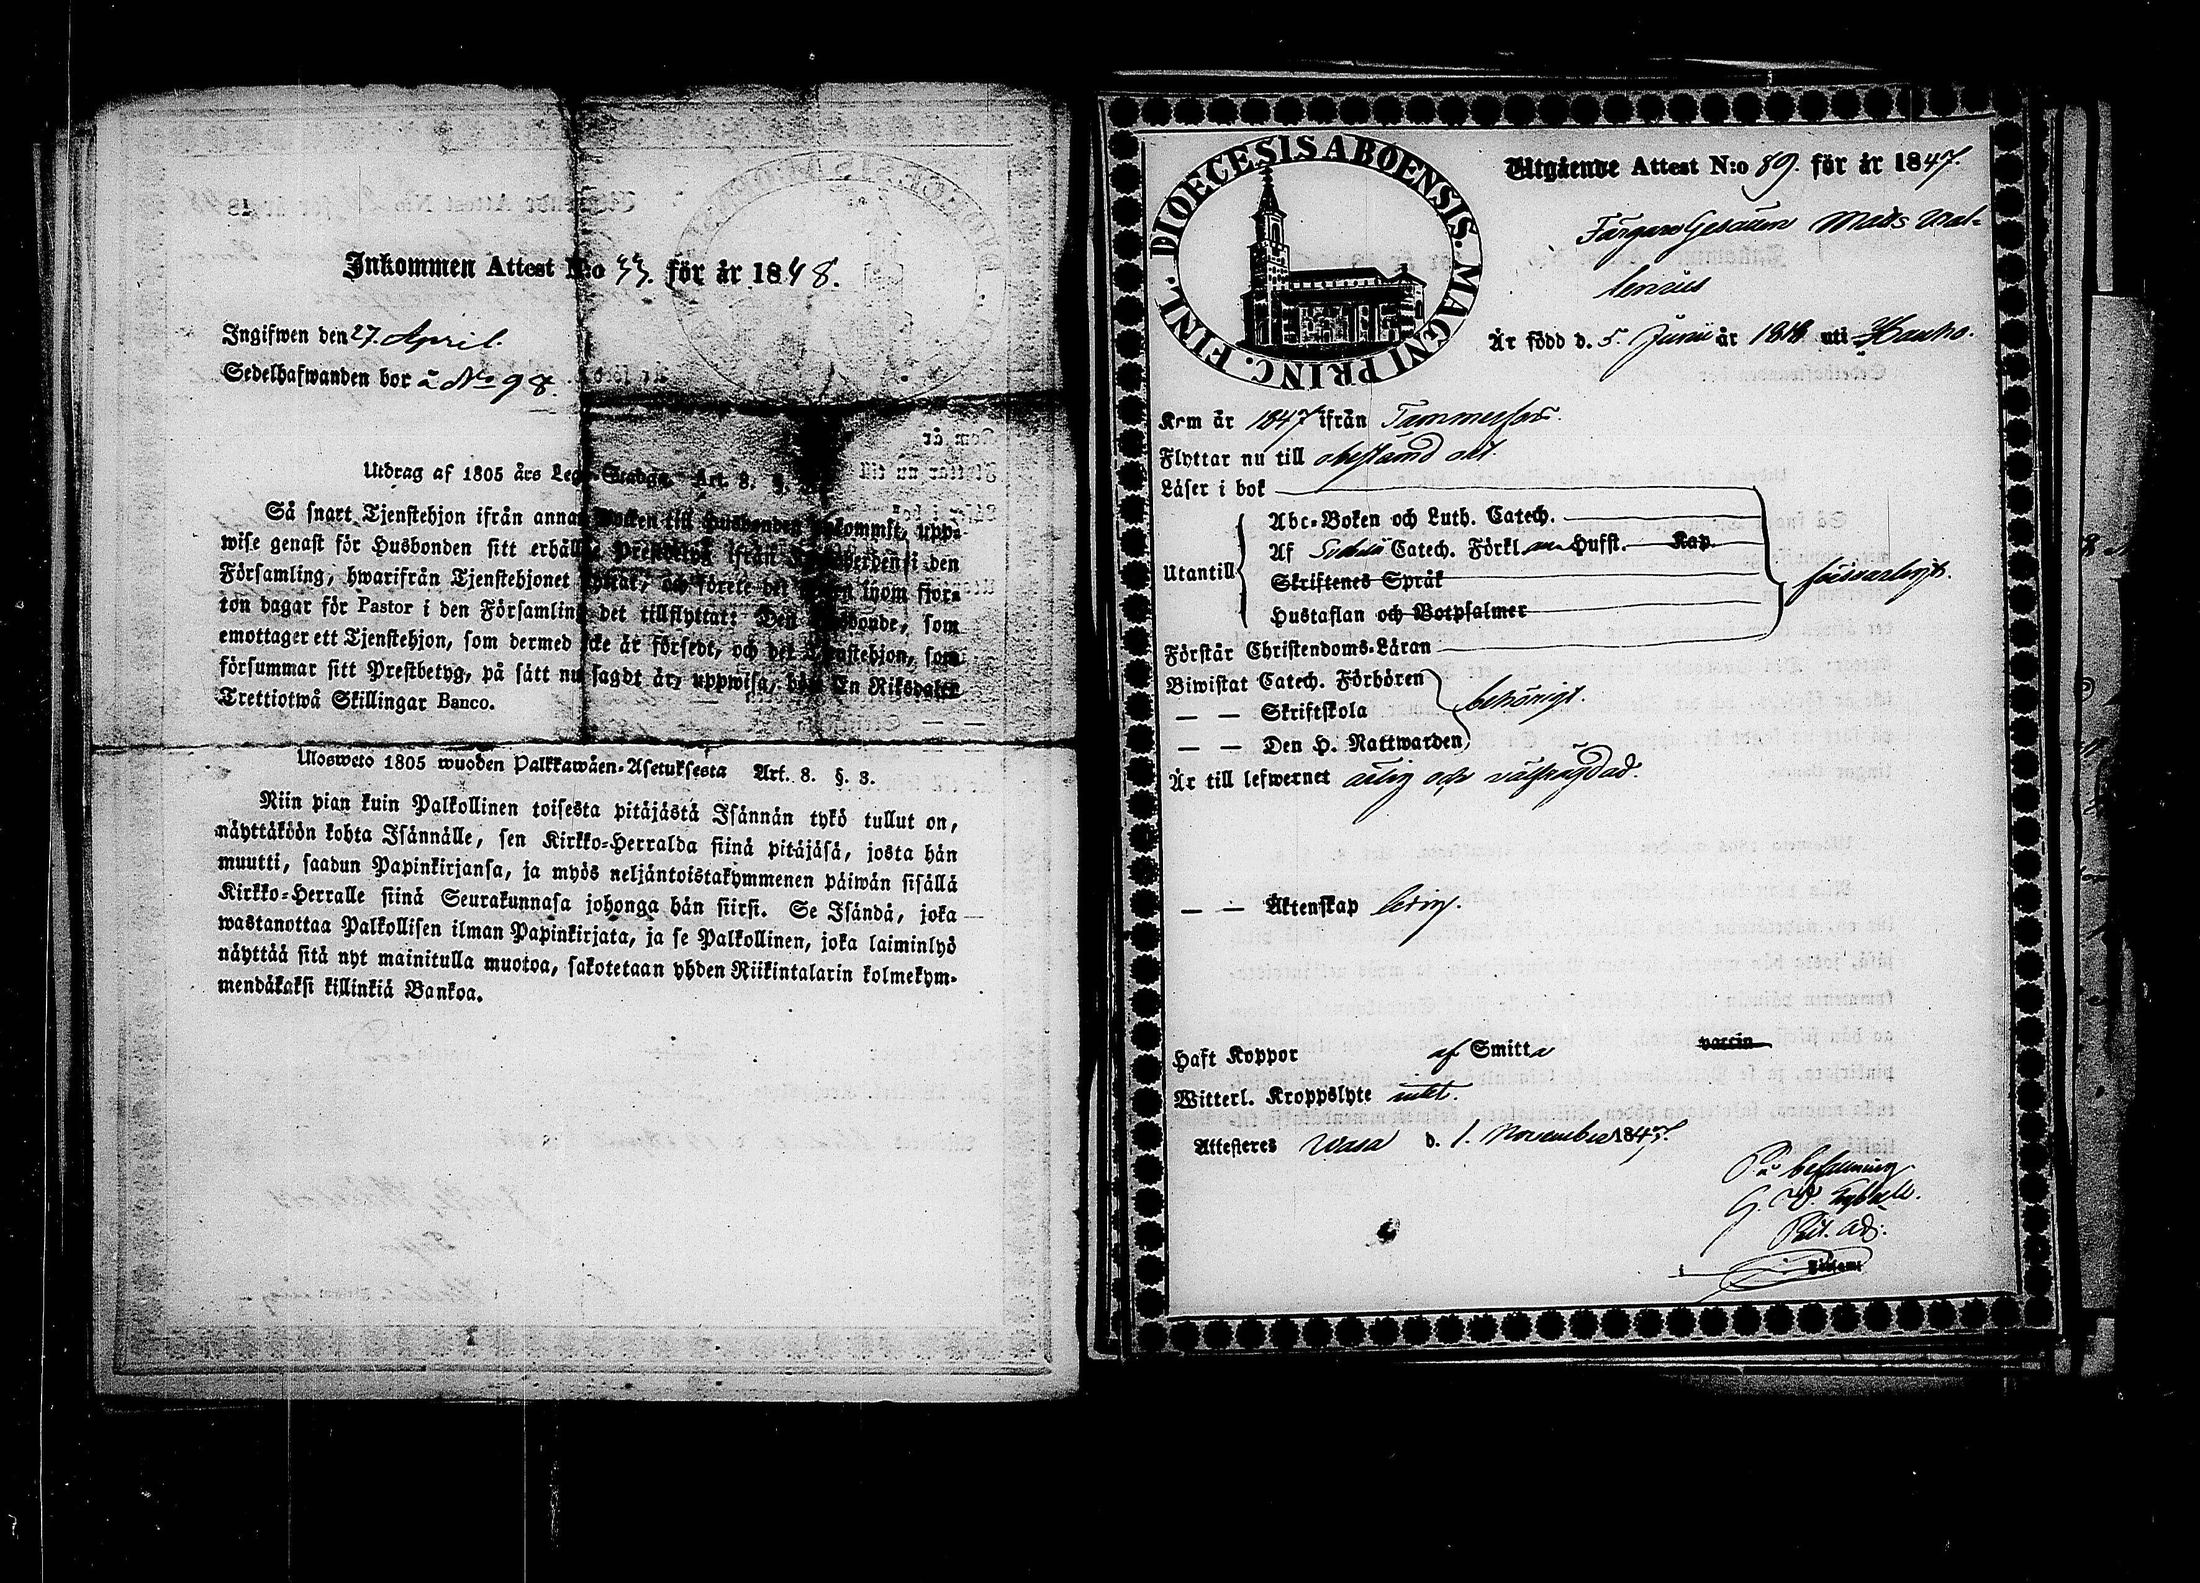 Inkommen Attest N:o 33. för år 1848.
Ingifwen den 27. April.
Sedelhafwanden bor å No 98.
Utdrag af 1805 års Lego-Stadga Art. 8. §.
Så snart Tjenstehjon ifrån annan Socken till Husbonden ankommit, upp-
wise genast för Husbonden sitt erhållne Prestbetyg ifrån i den
Församling, hwarifrån Tjenstehjonet flyttat, och förete det inom fjor-
ton dagar för Pastor i den Församling det tillflyttat: Den Husbonde, som
emottager ett Tjenstehjon, som dermed icke är försedt, och det Tjenstehjon, som
försummar sitt Prestbetyg, på sätt nu sagdt är, uppwisa, böte En Riksdaler
Trettiotwå Skillingar Banco.
Ulosweto 1805 wuoden Palkkawäen-Asetuksesta Art. 8. §. 3.
Niin pian kuin Palkollinen toisesta pitäjästä Isännän tykö tullut on,
näyttäköön kohta Isännälle, sen Kirkko-Herralda siinä pitäjäsä, josta hän
muutti, saadun Papinkirjansa, ja myös neljäntoistakymmenen päiwän sisällä
Kirkko-Herralle siinä Seurakunnasa johonga hän siirsi. Se Isändä, joka
wastanottaa Palkollisen ilman Papinkirjata, ja se Palkollinen, joka laiminlyö
näyttää sitä nyt mainitulla muotoa, sakotetaan yhden Riikintalarin kolmekym-
mendäkaksi killinkiä Bankoa.
DIOECESIS ABOENSIS. MAGNI PRINC. FINL.
Utgående Attest N:o 89. för år 1847.
Färgare Gesällen Matts Mal-
lenius
Är född d. 5. Junii år 1818 uti
Kom år 1847 ifrån Tammerfors.
Flyttar nu till obestämd ort
Läser i bok
Abc-Boken och Luth. Catech.
Af Catech. Förkl Hufst. Kap.
Utantill
Skriftenes Språk
Hustaflan och Botpsalmer
försvarligt.
Förstår Christendoms-Läran
Biwistat Catech. Förhören
— — Skriftskola
behörigt.
— — Den H. Nattwarden
Är till lefwernet ärlig och välfrägdad.
— — Äktenskap ledig.
Haft Koppor af Smitta vaccin
Witterl. Kroppslyte intet.
Attesteres Wasa d. 1. November 1847.
På befallning
G. W.
Past. adj.